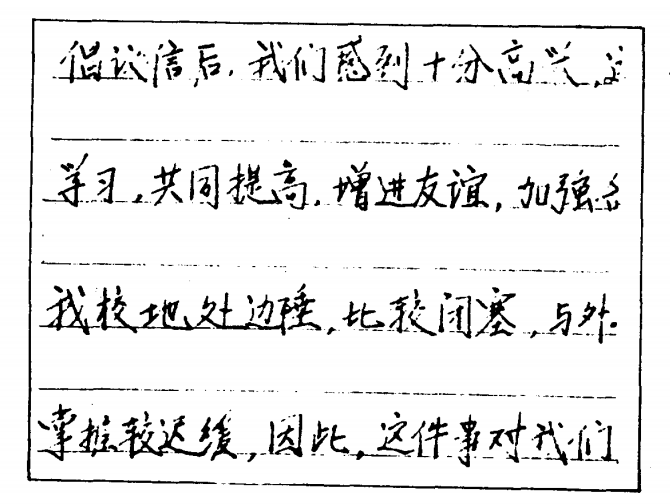 倡议信后，我们感到十分高兴，这
学习，共同提高，增进友谊，加强
我校地处边陲，比较闭塞，与外
掌握较迟缓，因此，这件事对我们